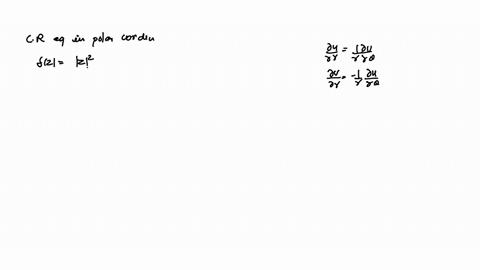 C.R eq in polar cordin
f(z) = |z|²
∂u/∂r = 1/r ∂v/∂θ
∂v/∂r = -1/r ∂u/∂θ